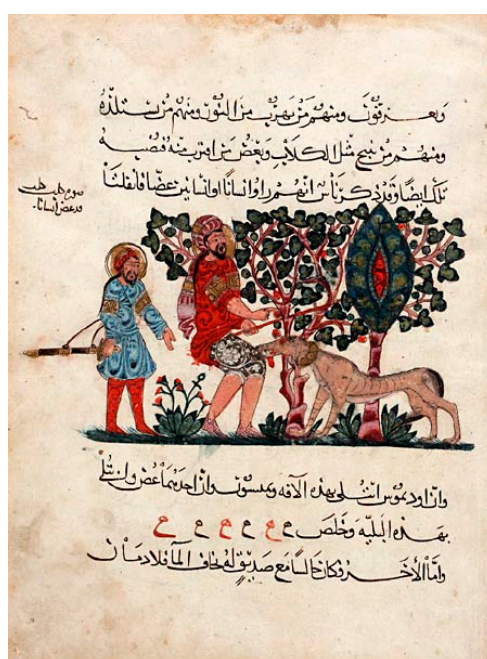 ويعرقون ومنهم من يهرب من النور ومنهم من يستلذه
ومنهم من ينبح مثل الكلاب وبعض من اقترب منه فتصيبه
تلك ايضا وقد ذكر ناس انهم راوا انسانا او انسانين عضا فانفلتا
صورة كلب كلب
قد عض انسانا
وان اوديموس ابتلى بهذه الآفه وثاميسون وان احدهما عض وابتلي
بهذه البلية وخلص ح ح ح ح ح ح
واما الآخر فكان جالسا مع صديق له يخاف الما فلادمان